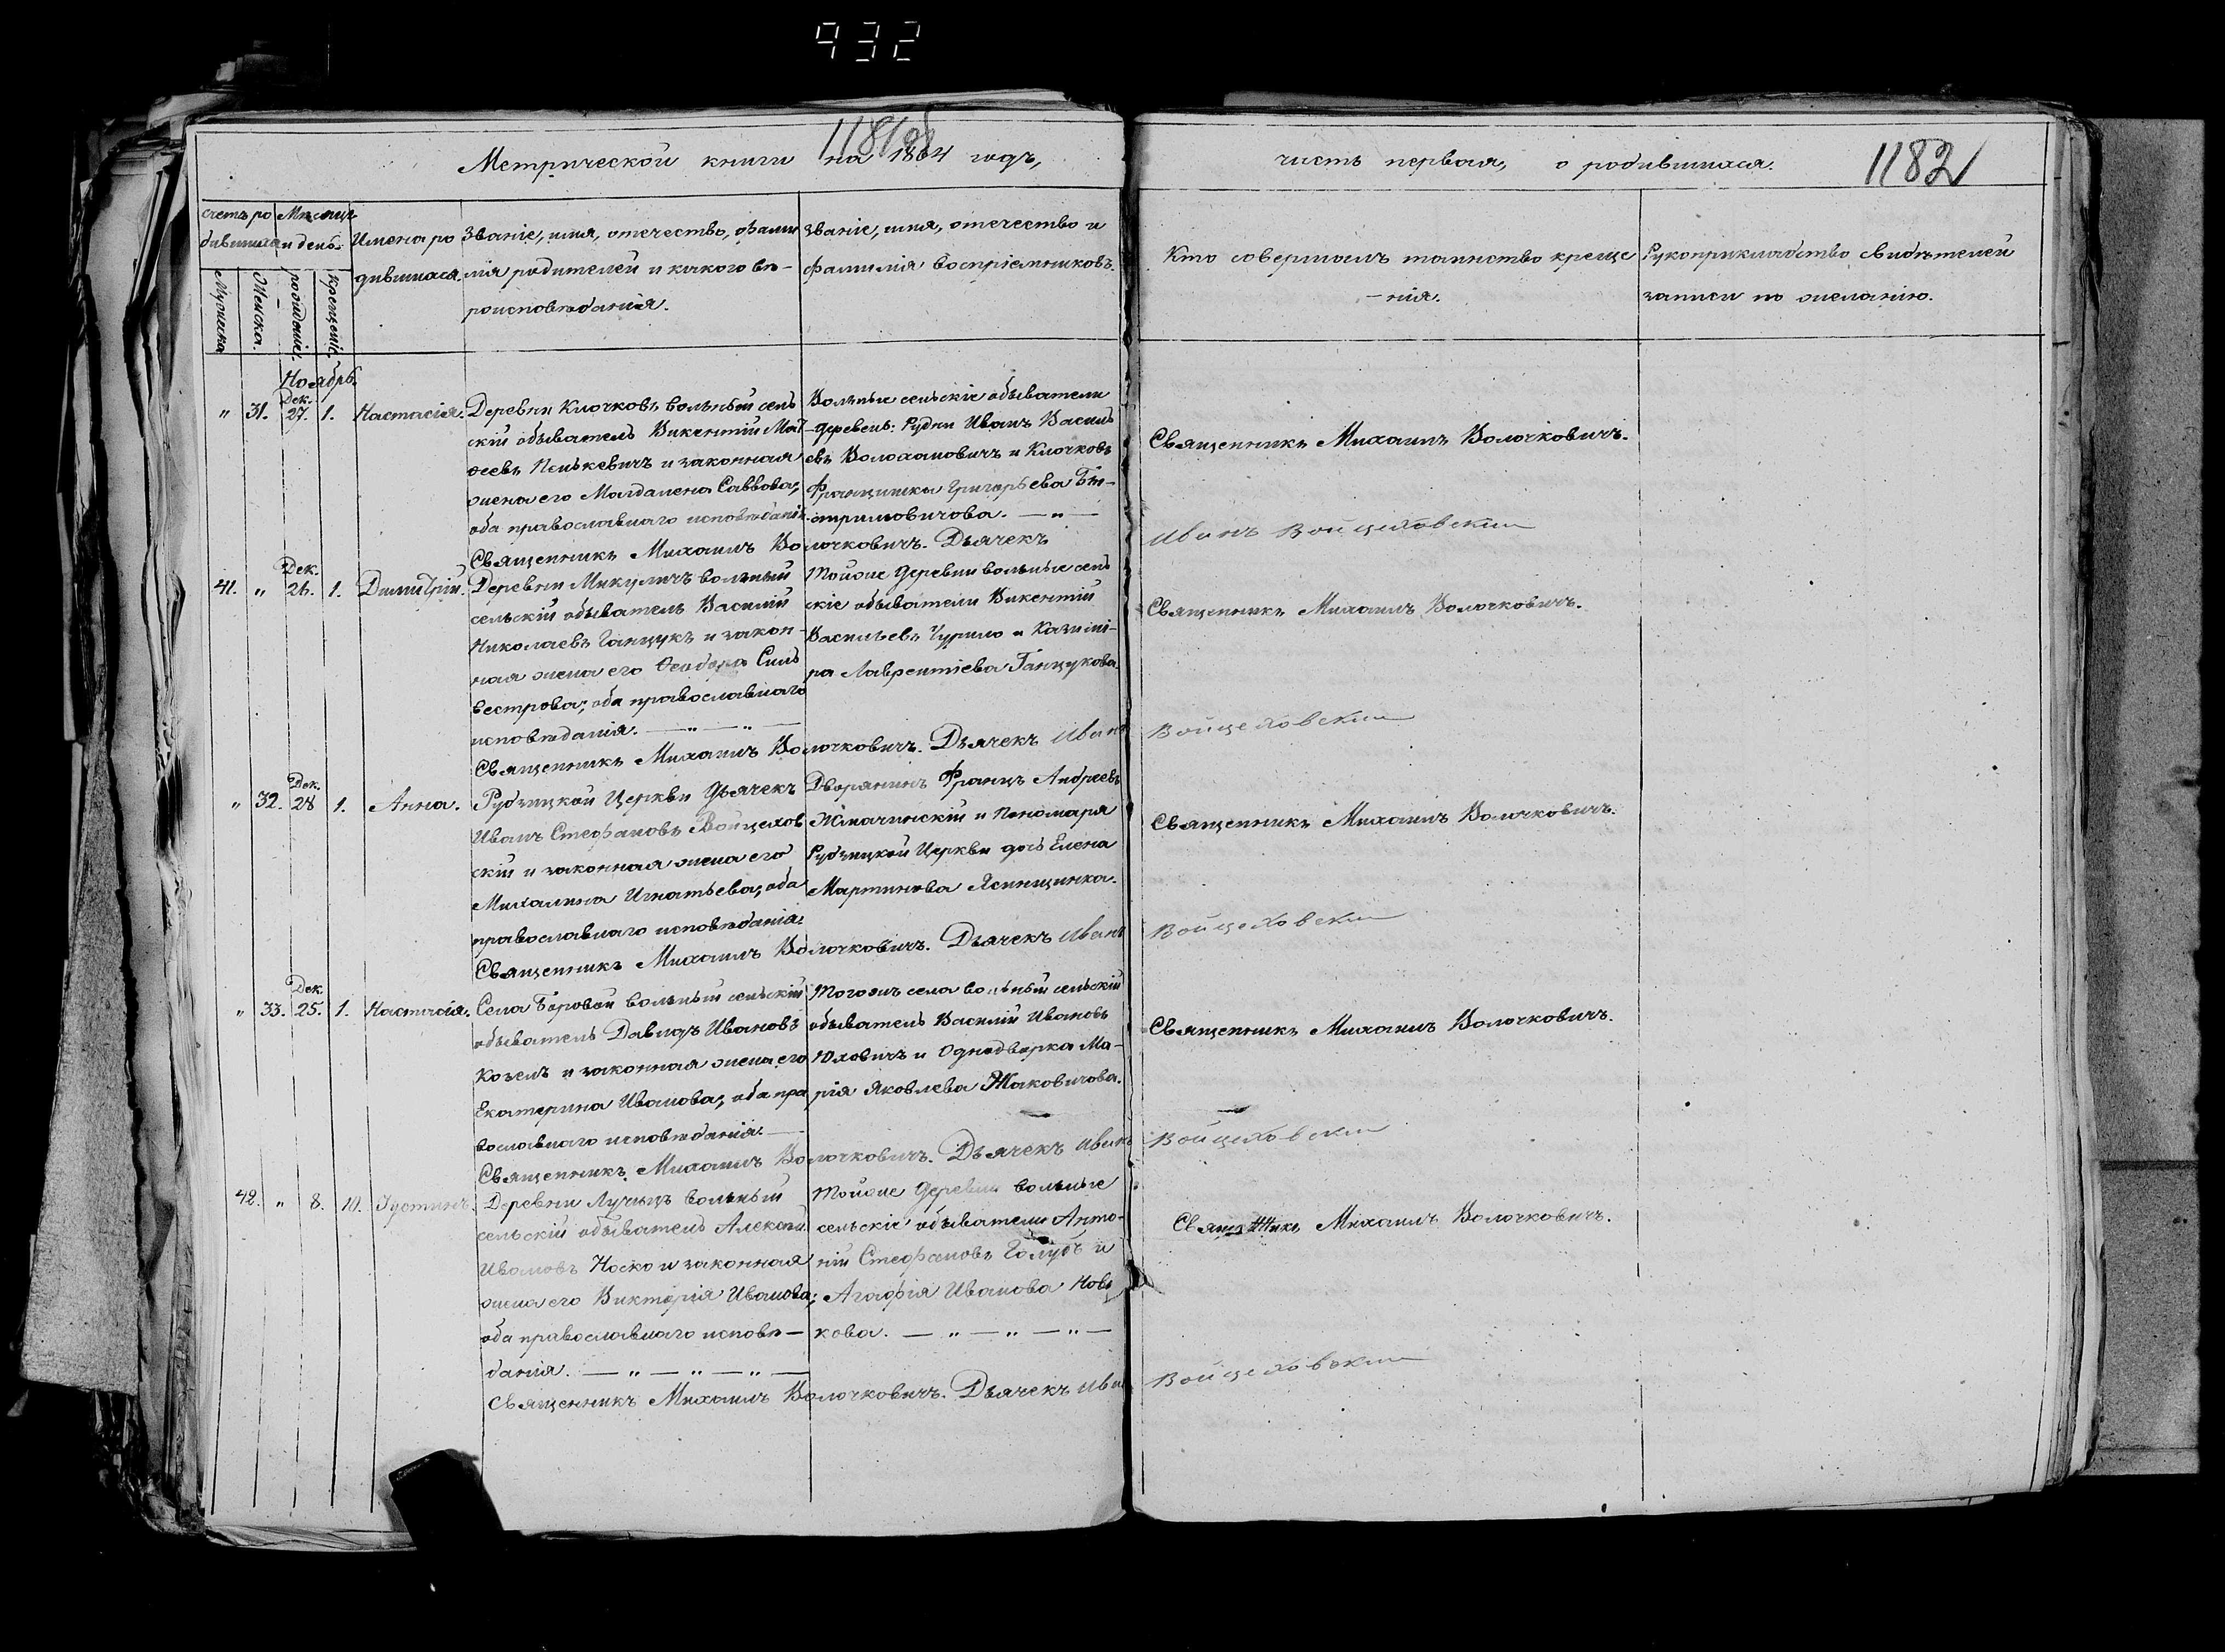 932
1181об
Метрической книги на 1864 годъ,
часть первая, о родившихся.
1182
счетъ ро
дившихся
Мѣсяцъ
и день.
Мужеска
Женска.
рожденіе.
Крещеніе.
Имена ро
дившихся.
Званіе, имя, отечество, фами
лія родителей и какого вѣ-
роисповѣданія.
Званіе, имя, отечество и
фамилія воспріемниковъ.
Кто совершалъ таинство креще
-нія.
Рукоприкладство свидѣтелей
записи по желанію.
Ноябрь.
Дек.
" 31. 27. 1. Настасія.
Деревни Клочковъ вольный сель
скій обыватель Викентій Мат
ѳеевъ Пенькевичъ и законная
жена его Магдалена Саввова;
оба православнаго исповѣданія.
Вольные сельскіе обыватели
деревень: Рудни Иванъ Василь
евъ Волохановичъ и Клочковъ
Францишка Григорьева
Священникъ Михаилъ Волочковичъ.
Священникъ Михаилъ Волочковичъ. Дьячекъ
Иванъ Войцеховскій
Дек.
41. " 26. 1. Димитрій.
Деревни Микуличъ вольный
сельскій обыватель Василій
Николаевъ Ганцукъ и закон-
ная жена его Ѳеодора Силь
вестрова; оба православнаго
исповѣданія. — " — " —
Тойже деревни вольные сель
скіе обыватели Викентій
Васильевъ Чурило и Казимі-
ра Лаврентіева Ганцукова.
Священникъ Михаилъ Волочковичъ.
Священникъ Михаилъ Волочковичъ. Дьячекъ Иванъ
Войцеховскій
Дек.
" 32. 28 1. Анна.
Рубчицкой Церкви Дьячекъ
Иванъ Стефановъ Войцехов
скій и законная жена его
Михалина Игнатьева; оба
православнаго исповѣданія.
Дворянинъ Францъ Андреевъ
Жмачинскій и Пономаря
Рубчицкой Церкви дочь Елена
Мартинова Ясинщинка.
Священникъ Михаилъ Волочковичъ.
Священникъ Михаилъ Волочковичъ. Дьячекъ Иванъ
Войцеховскій
Дек.
" 33. 25. 1. Настасія.
Села Боровой вольный сельскій
обыватель Давидъ Ивановъ
Козелъ и законная жена его
Екатерина Иванова; оба пра
вославнаго исповѣданія. —
Тогожъ села вольный сельскій
обыватель Василій Ивановъ
Юховичъ и Однодворка Ма-
рія Яковлева Жаковичова.
Священникъ Михаилъ Волочковичъ.
Священникъ Михаилъ Волочковичъ. Дьячекъ Иванъ
Войцеховскій
42. " 8. 10. Іустинъ.
Деревни Лучицъ вольный
сельскій обыватель Алексѣй
Ивановъ Носко и законная
жена его Викторія Иванова;
оба православнаго исповѣ-
данія. — " — " — " —
Тойже деревни вольные
сельскіе обыватели Анто-
ній Стефановъ Голубъ и
Агафія Иванова Нов
кова. — " — " — " —
Священникъ Михаилъ Волочковичъ.
Священникъ Михаилъ Волочковичъ. Дьячекъ Иван
Войцеховскій